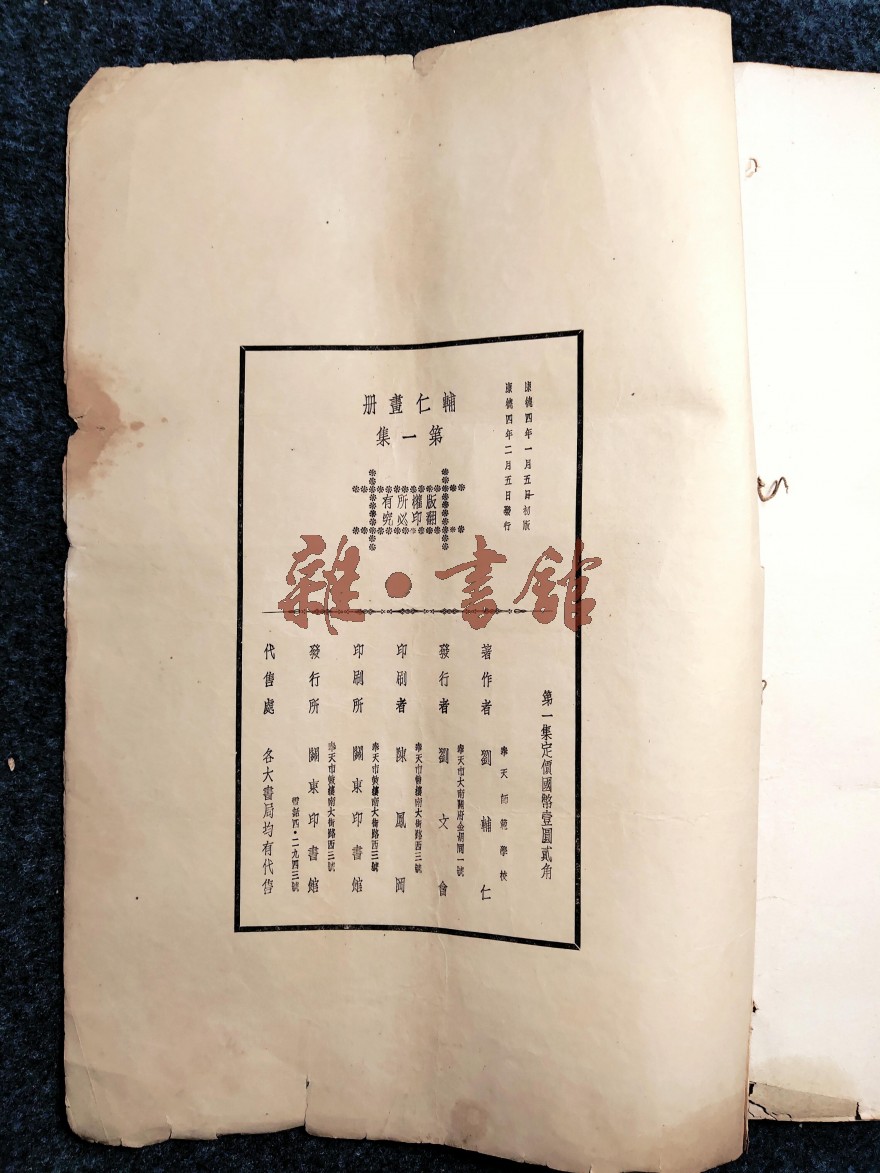 康德四年一月五日初版
康德四年二月五日發行
輔仁畫册
第一集
版權所有
翻印必究
第一集定價國幣壹圓貳角
著作者 奉天師範學校 劉輔仁
發行者 奉天市大南關府金胡同一號 劉文會
印刷者 奉天市鼓樓南大街路西三號 陳鳳岡
印刷所 奉天市鼓樓南大街路西三號 關東印書館
發行所 奉天市鼓樓南大街路西三號 關東印書館
電話四·二九四三號
代售處 各大書局均有代售
雜·書館